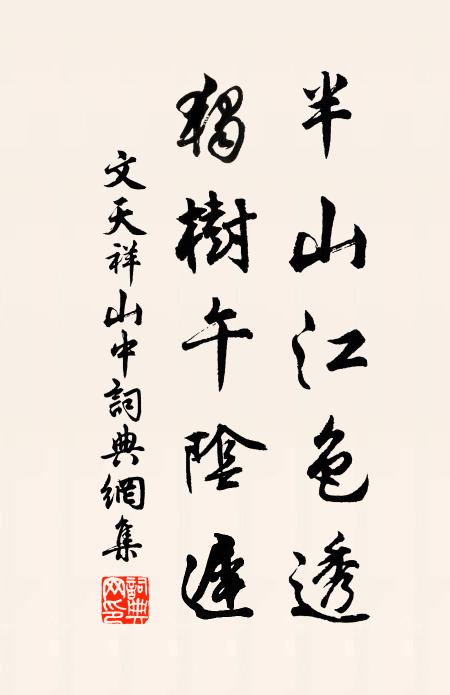 半山江色透
獨樹午陰遲
文天祥山中詞典網集
詞典網印